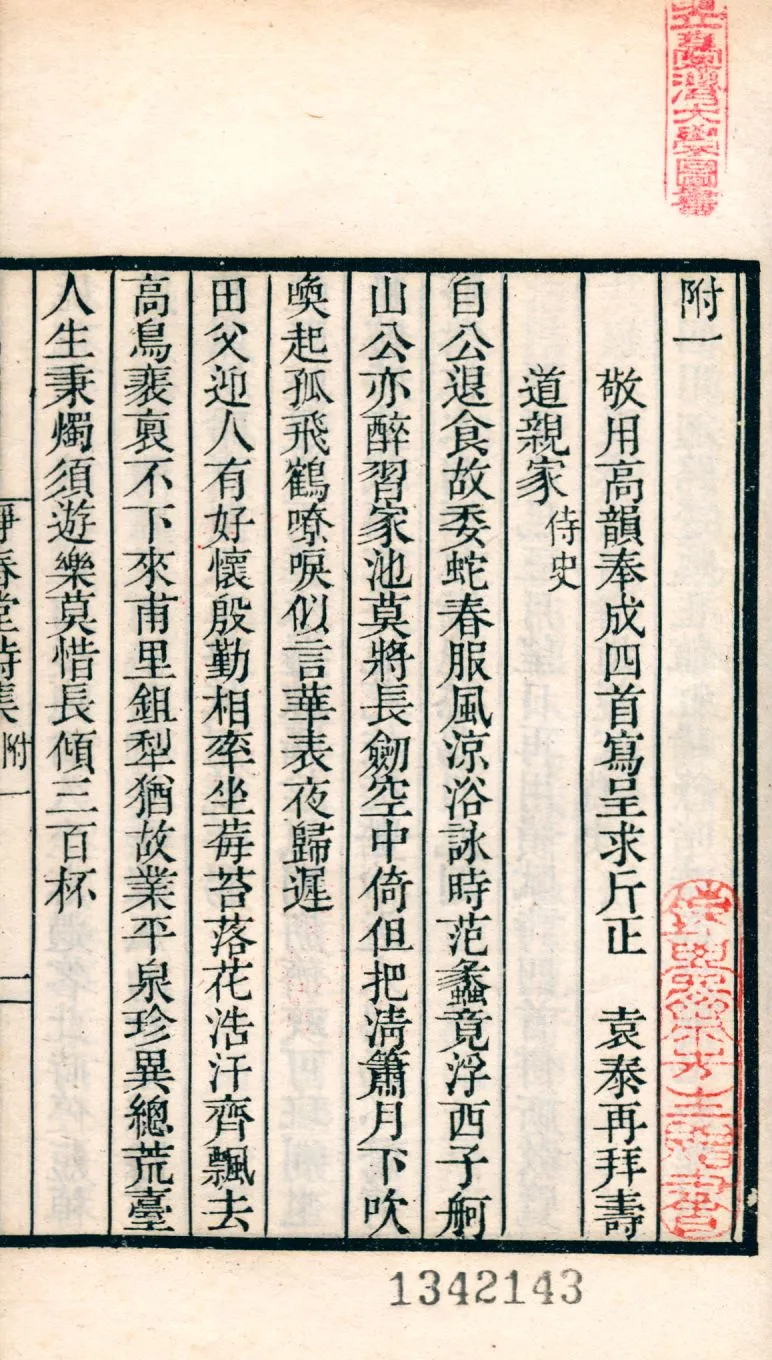 附一
敬用高韻奉成四首寫呈求斤正　袁泰再拜壽
道親家侍史
自公退食故委蛇春服風涼浴詠時范蠡竟浮西子舸
山公亦醉習家池莫將長劒空中倚但把淸簫月下吹
喚起孤飛鶴嘹唳似言華表夜歸遲
田父迎人有好懷殷勤相率坐莓苔落花浩汗齊飄去
高鳥裵裒不下來甫里鉏犁猶故業平泉珍異總荒臺
人生秉燭須遊樂莫惜長傾三百杯
靜春堂詩集 附一 一
1342143